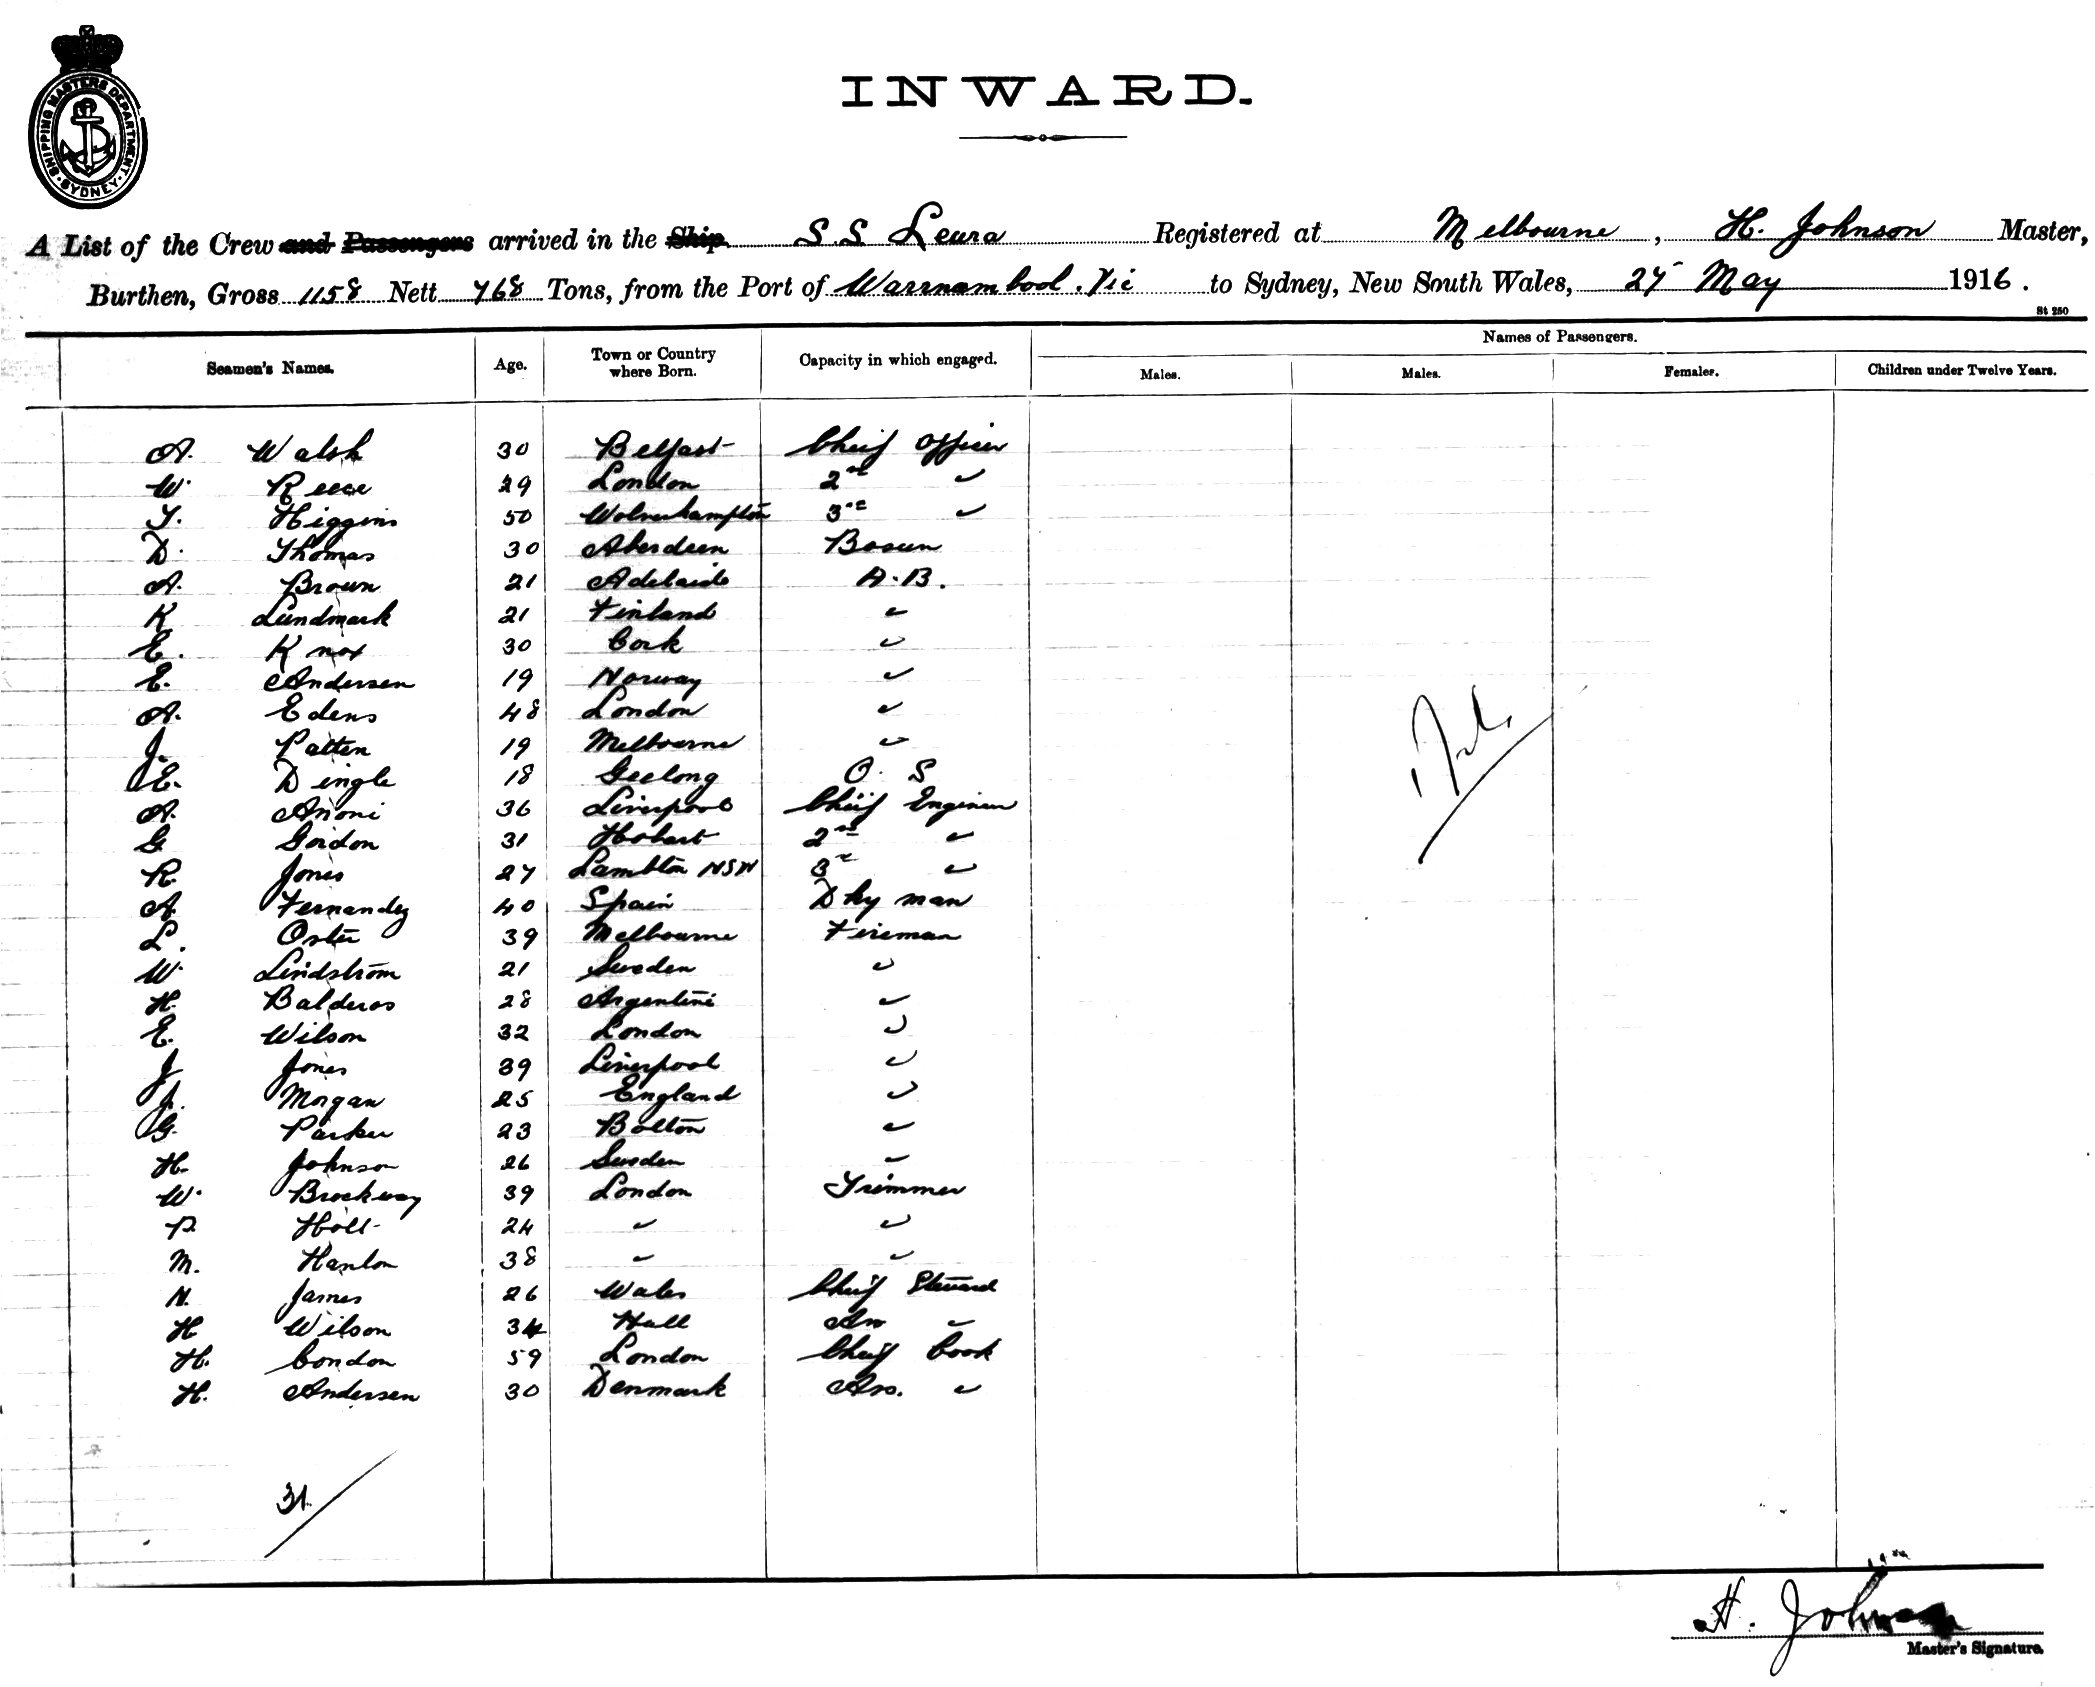 SHIPPING MASTERS DEPARTMENT · SYDNEY ·
INWARD.
A List of the Crew and Passengers arrived in the Ship S.S Leura Registered at Melbourne, H. Johnson Master,
Burthen, Gross 1158 Nett 768 Tons, from the Port of Warrnambool. Vic to Sydney, New South Wales, 27 May 1916.
St 250
Seamen's Names. Age. Town or Country where Born. Capacity in which engaged. Names of Passengers.
Males. Males. Females. Children under Twelve Years.
A. Walsh 30 Belfast Chief Officer
W. Reece 29 London 2nd "
T. Higgins 50 Wolverhampton 3rd "
D. Thomas 30 Aberdeen Bosun
A. Brown 21 Adelaide A.B.
K Lundmark 21 Finland "
E. Knox 30 Cork "
E. Andersen 19 Norway "
A. Edens 48 London "
J. Patten 19 Melbourne "
E. Dingle 18 Geelong O. S
A. Anoni 36 Liverpool Chief Engineer
G Gordon 31 Hobart 2nd "
R. Jones 27 Lambton NSW 3rd "
A. Fernandez 40 Spain Dky man
L. Oster 39 Melbourne Fireman
W. Lindstrom 21 Sweden "
H. Balderos 28 Argentine "
E. Wilson 32 London "
J Jones 39 Liverpool "
J. Morgan 25 England "
G. Parker 23 Bolton "
H. Johnson 26 Sweden "
W. Brockway 39 London Trimmer
P. Holt 24 " "
M. Hanlon 38 " "
N. James 26 Wales Chief Steward
H Wilson 34 Hull Ass "
H. Condon 59 London Chief Cook
H. Andersen 30 Denmark Ass. "
31
H. Johnson
Master's Signature.